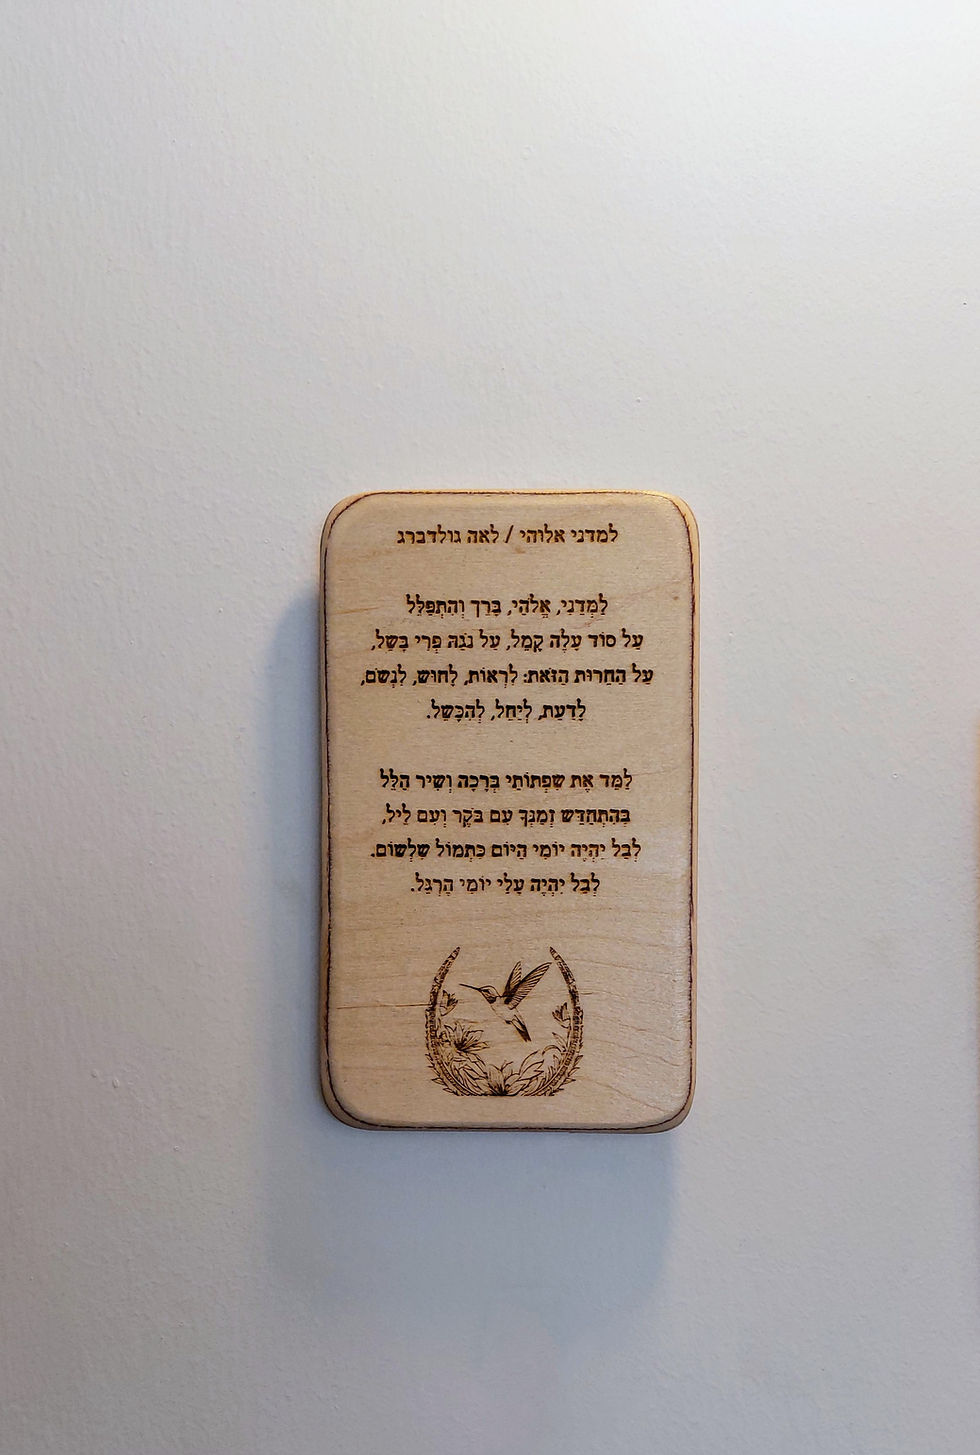 למדני אלוהי / לאה גולדברג
לַמְּדֵנִי, אֱלֹהַי, בָּרֵךְ וְהִתְפַּלֵּל
עַל סוֹד עָלֶה קָמֵל, עַל נֹגַהּ פְּרִי בָּשֵׁל,
עַל הַחֵרוּת הַזֹּאת: לִרְאוֹת, לָחוּשׁ, לִנְשֹׁם,
לָדַעַת, לְיַחֵל, לְהִכָּשֵׁל.
לַמֵּד אֶת שִׂפְתוֹתַי בְּרָכָה וְשִׁיר הַלֵּל
בְּהִתְחַדֵּשׁ זְמַנְּךָ עִם בֹּקֶר וְעִם לֵיל,
לְבַל יִהְיֶה יוֹמִי הַיּוֹם כִּתְמוֹל שִׁלְשׁוֹם.
לְבַל יִהְיֶה עָלַי יוֹמִי הֶרְגֵּל.